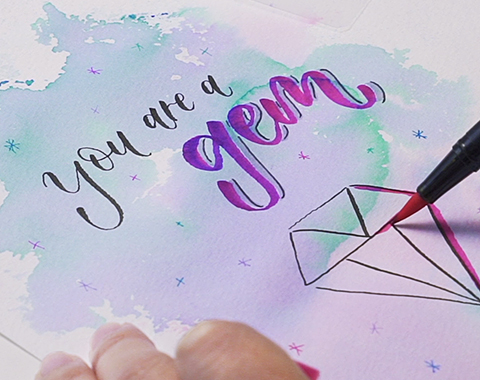 you are a
gem